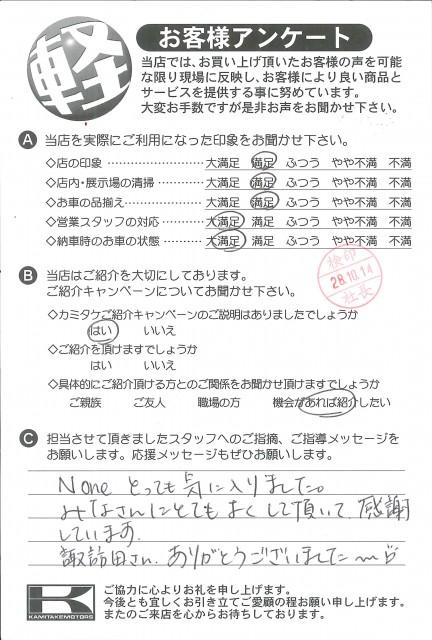 軽
お客様アンケート
当店では、お買い上げ頂いたお客様の声を可能
な限り現場に反映し、お客様により良い商品と
サービスを提供する事に努めています。
大変お手数ですが是非お声をお聞かせ下さい。
A 当店を実際にご利用になった印象をお聞かせ下さい。
◇店の印象 ………………… 大満足 満足 ふつう やや不満 不満
◇店内・展示場の清掃………… 大満足 満足 ふつう やや不満 不満
◇お車の品揃え……………… 大満足 満足 ふつう やや不満 不満
◇営業スタッフの対応………… 大満足 満足 ふつう やや不満 不満
◇納車時のお車の状態………… 大満足 満足 ふつう やや不満 不満
検印
28.10.14
社長
B 当店はご紹介を大切にしてあります。
ご紹介キャンペーンについてお聞かせ下さい。
◇カミタケご紹介キャンペーンのご説明はありましたでしょうか
はい いいえ
◇ご紹介を頂けますでしょうか
はい いいえ
◇具体的にご紹介頂ける方とのご関係をお聞かせ頂けますでしょうか
ご親族 ご友人 職場の方 機会があれば紹介したい
C 担当させて頂きましたスタッフへのご指摘、ご指導メッセージを
お願いします。応援メッセージもぜひお願いします。
None とっても気に入りました。
みなさんにとてもよくして頂いて、感謝
しています。
諏訪田さん、ありがとうございました
K
KAMITAKEMOTORS
ご協力に心よりお礼を申し上げます。
今後とも宜しくお引き立てご愛顧の程お願い申し上げます。
またのご来店を心からお待ちしております。